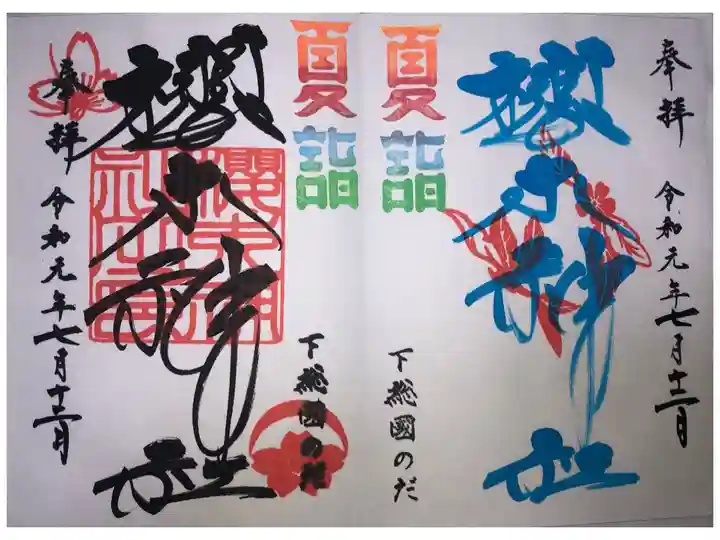 奉拝
令和元年七月十二日
櫻木神社
夏詣
下総國のだ
夏詣
下総國のだ
櫻木神社
櫻木神社印
奉拝
令和元年七月十二日